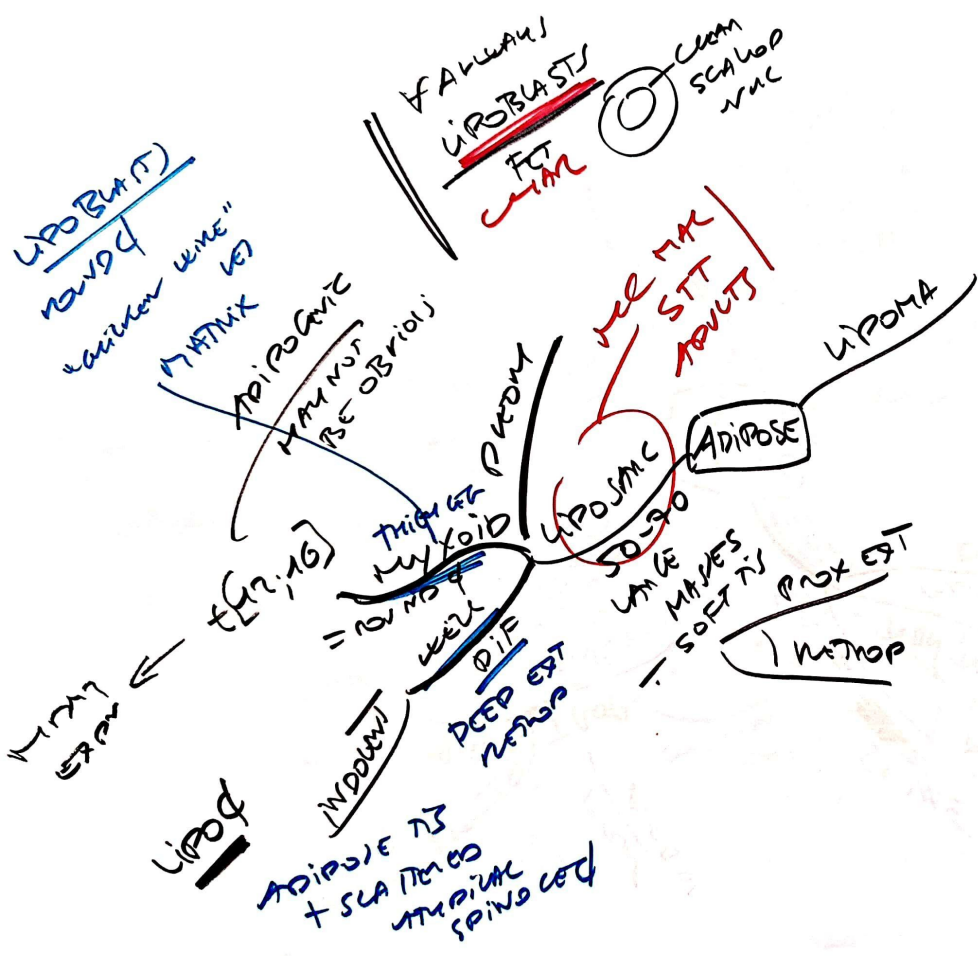 ∀ ALWAYS
LIPOBLASTS
FCT
CHAR
CLEAR
SCALLOP
NUC
LIPOBLAST)
ROUND ¢
"CHICKEN WIRE"
VES
MATRIX
ADIPOGENIC
MAY NOT
BE OBVIOUS
STT
ADULTS
LIPOMA
ADIPOSE
LIPOSARC
50-70
LARGE
MASSES
SOFT TIS
PROX EXT
RETROP
THIGH LEG
MYXOID
= ROUND ¢
WELL
DIF
DEEP EXT
RETROP
t[12,16]
EXPR
INDOLENT
LIPO ¢
ADIPOSE TIS
+ SCATTERED
ATYPICAL
SPIND CELL